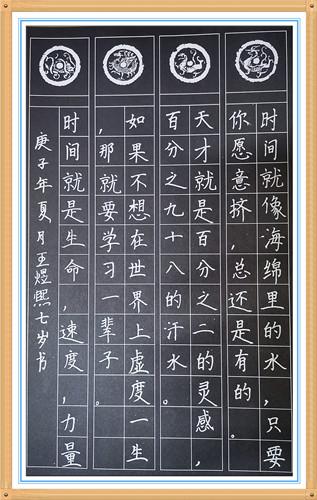 时间就像海绵里的水，只要
你愿意挤，总还是有的。
天才就是百分之二的灵感，
百分之九十八的汗水。
如果不想在世界上虚度一生
，那就要学习一辈子。
时间就是生命，速度，力量
庚子年夏月王煜熙七岁书